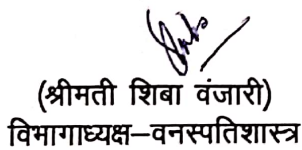 (श्रीमती शिबा वंजारी)
विभागाध्यक्ष–वनस्पतिशास्त्र